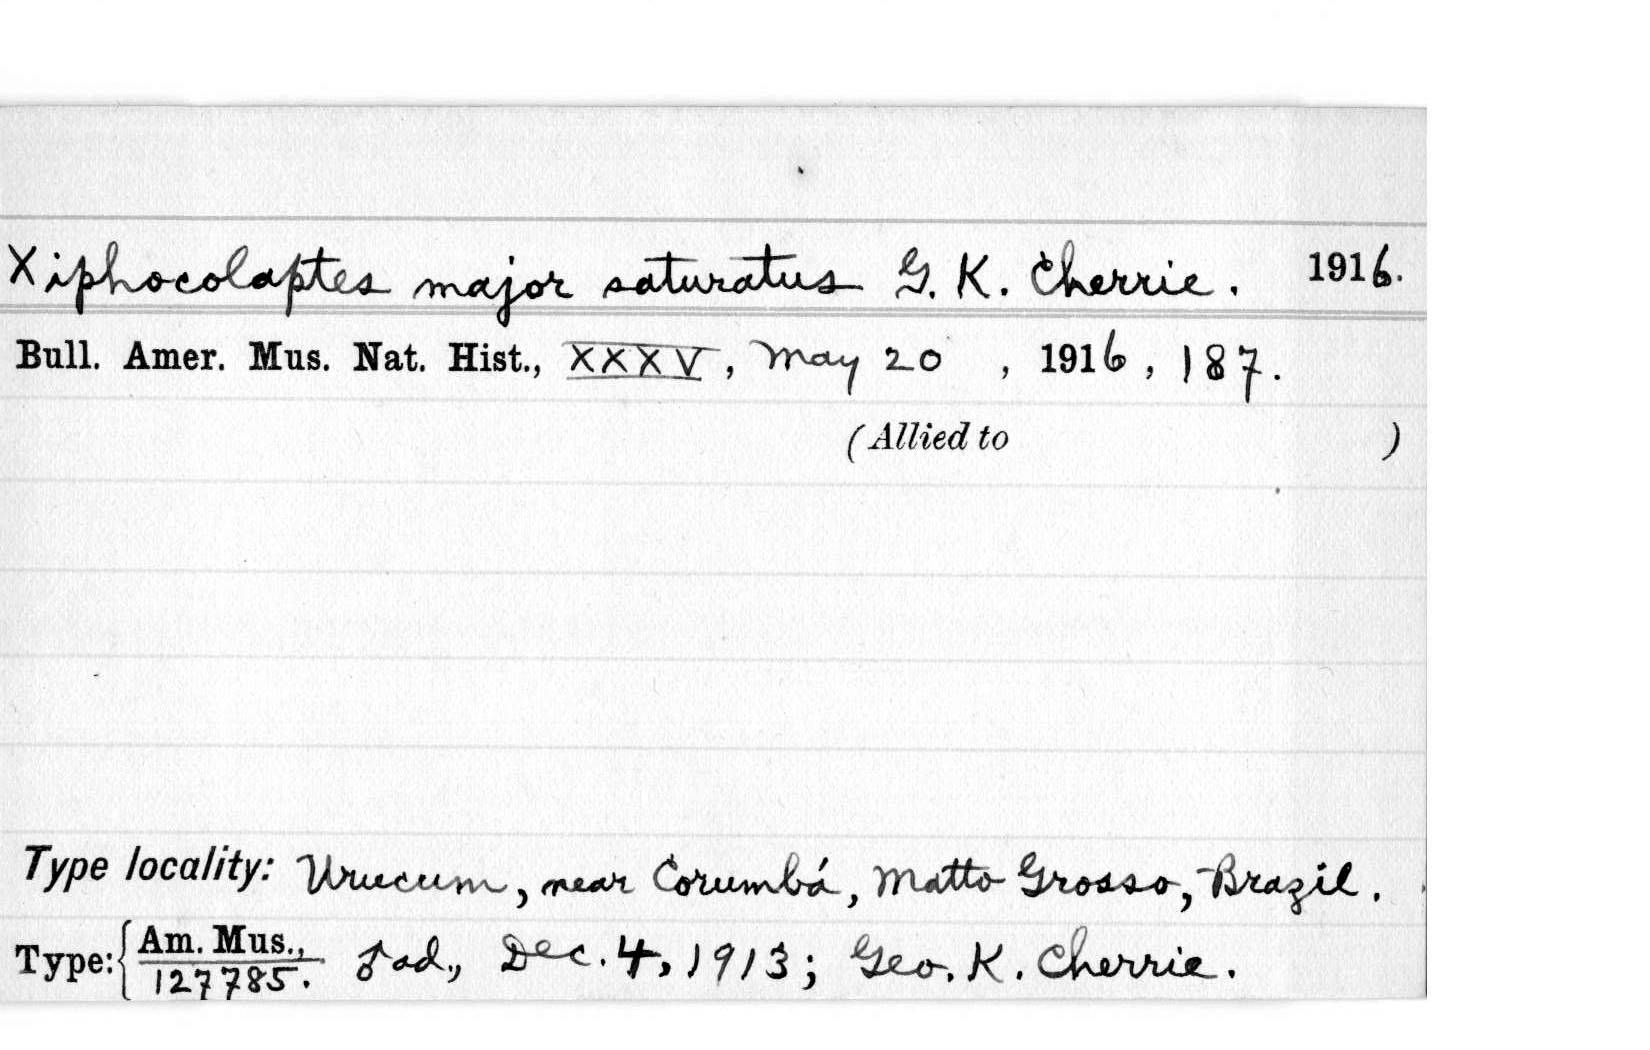 Xiphocolaptes major saturatus G. K. Cherrie. 1916.
Bull. Amer. Mus. Nat. Hist., XXXV, May 20, 1916, 187.
(Allied to )
Type locality: Urucum, near Corumbá, Matto Grosso, Brazil.
Type: { Am. Mus., ♂ ad., Dec. 4, 1913; Geo. K. Cherrie.
127785.